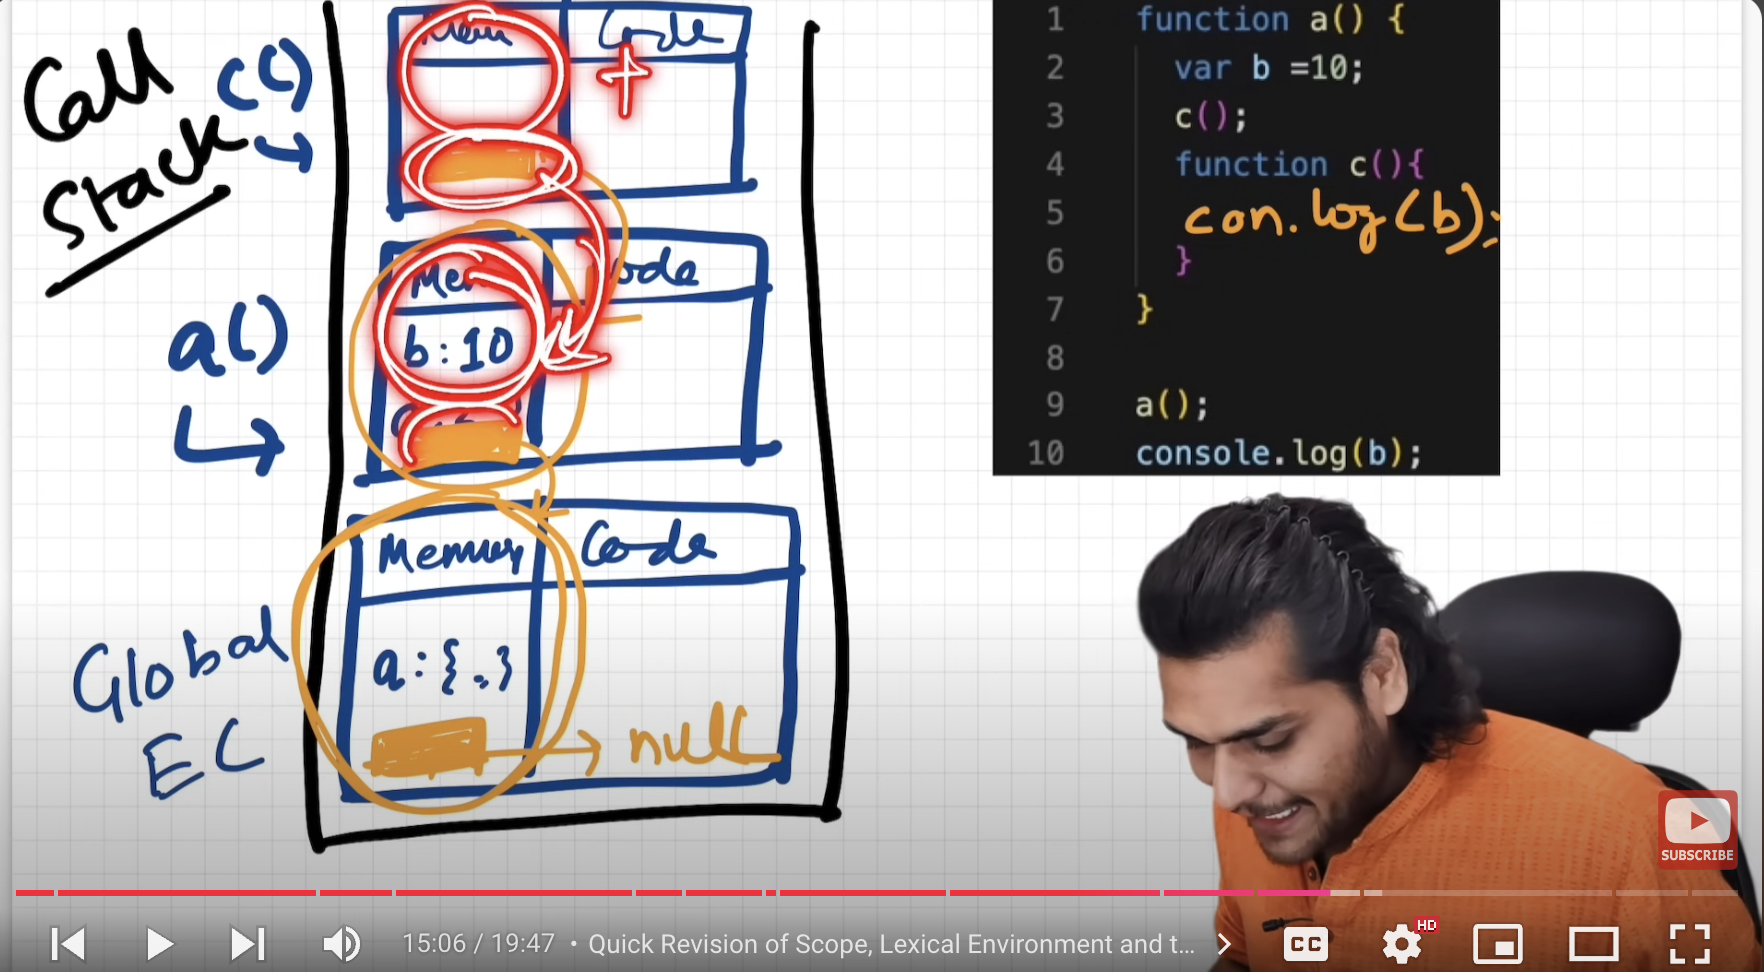 Call
Stack
c()
Mem
Code
a()
Mem
Code
b:10
Global
EC
Memory
Code
a:{.,}
null
1 function a() {
2 var b =10;
3 c();
4 function c(){
5 con.log(b);
6 }
7 }
8
9 a();
10 console.log(b);
SUBSCRIBE
15:06 / 19:47 • Quick Revision of Scope, Lexical Environment and t...
CC
HD